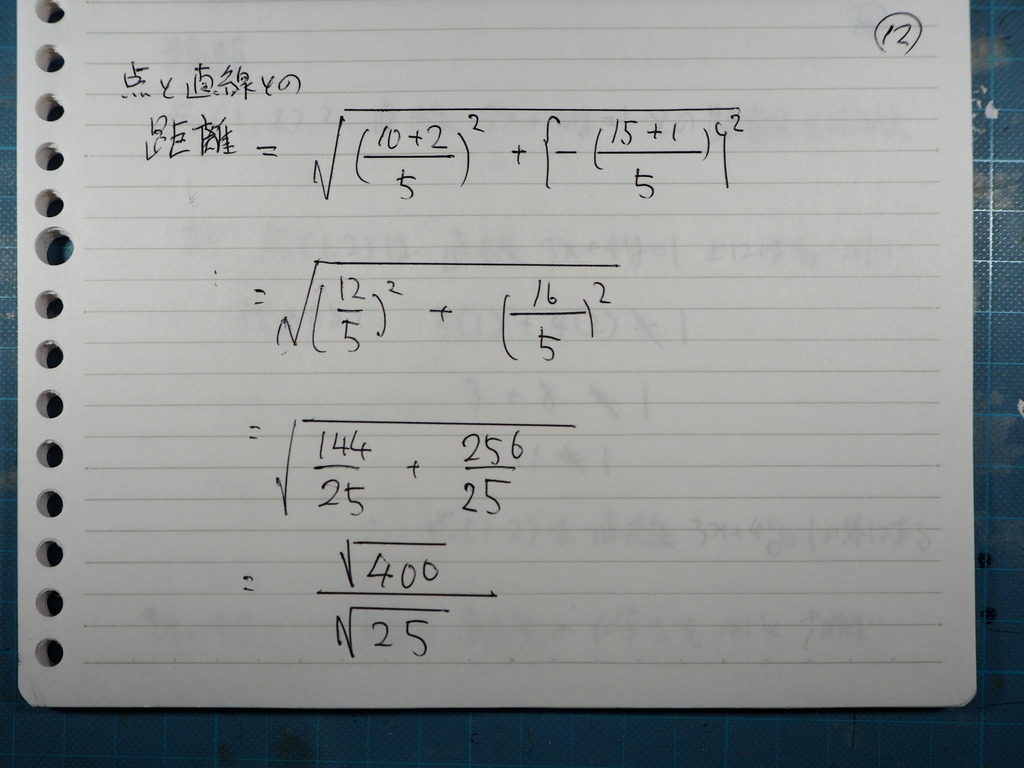 ⑫
点と直線との
距離 = √((10+2)/5)² + {-((15+1)/5)}²
= √(12/5)² + (16/5)²
= √144/25 + 256/25
= √400/√25